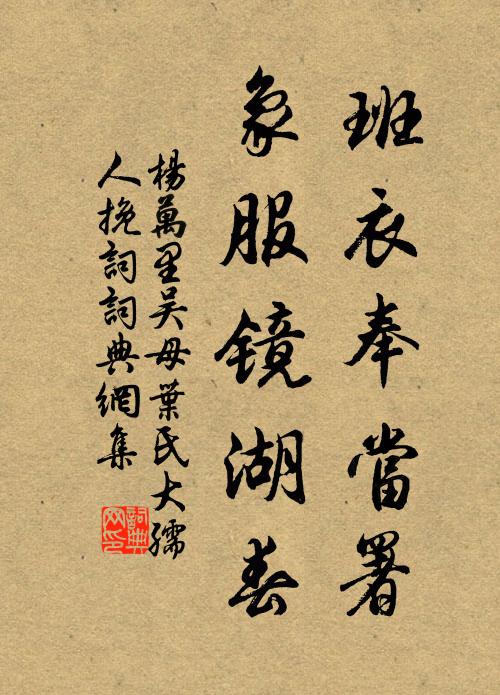 班衣奉當署
象服镜湖春
楊萬里吴母葉氏大孺
人挽詞詞典網集
詞典网印